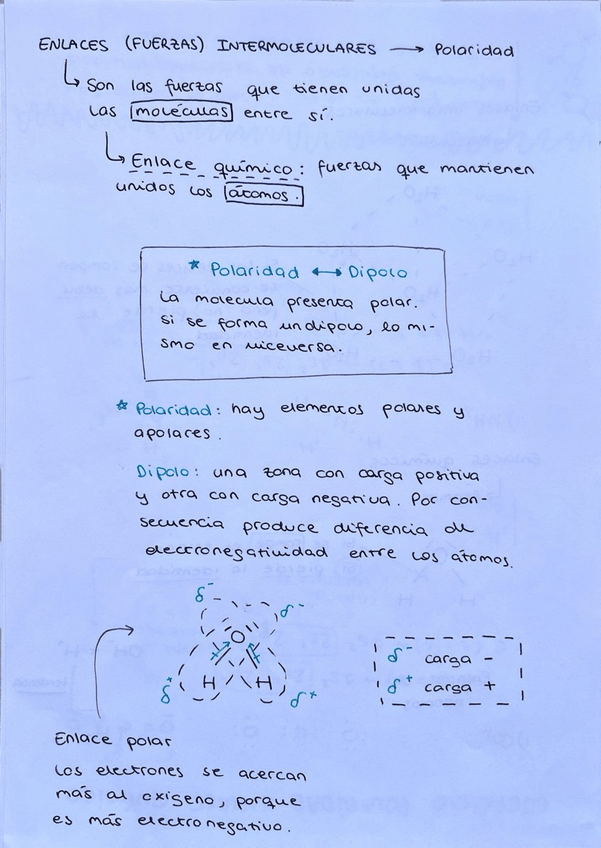 ENLACES (FUERZAS) INTERMOLECULARES → Polaridad
↳ Son las fuerzas que tienen unidas
las moléculas entre sí.
↳ Enlace químico: fuerzas que mantienen
unidos los átomos.
* Polaridad ↔ Dipolo
La molecula presenta polar.
si se forma un dipolo, lo mi-
smo en viceversa.
* Polaridad: hay elementos polares y
apolares.
Dipolo: una zona con carga positiva
y otra con carga negativa. Por con-
secuencia produce diferencia de
electronegatividad entre los átomos.
δ⁻ δ⁻
O
H H
δ⁺ δ⁺
δ⁻ carga -
δ⁺ carga +
Enlace polar
Los electrones se acercan
más al oxígeno, porque
es más electronegativo.